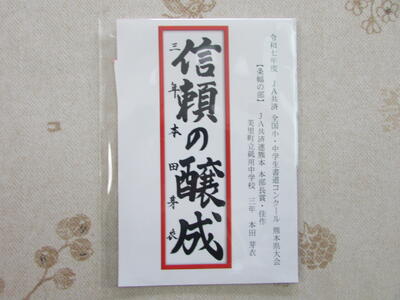 令和七年度　JA共済　全国小・中学生書道コンクール　熊本県大会
【条幅の部】　JA共済連熊本　本部長賞・佳作
美里町立砥用中学校　三年　本田　芽衣
信頼の醸成
三年　本田芽衣